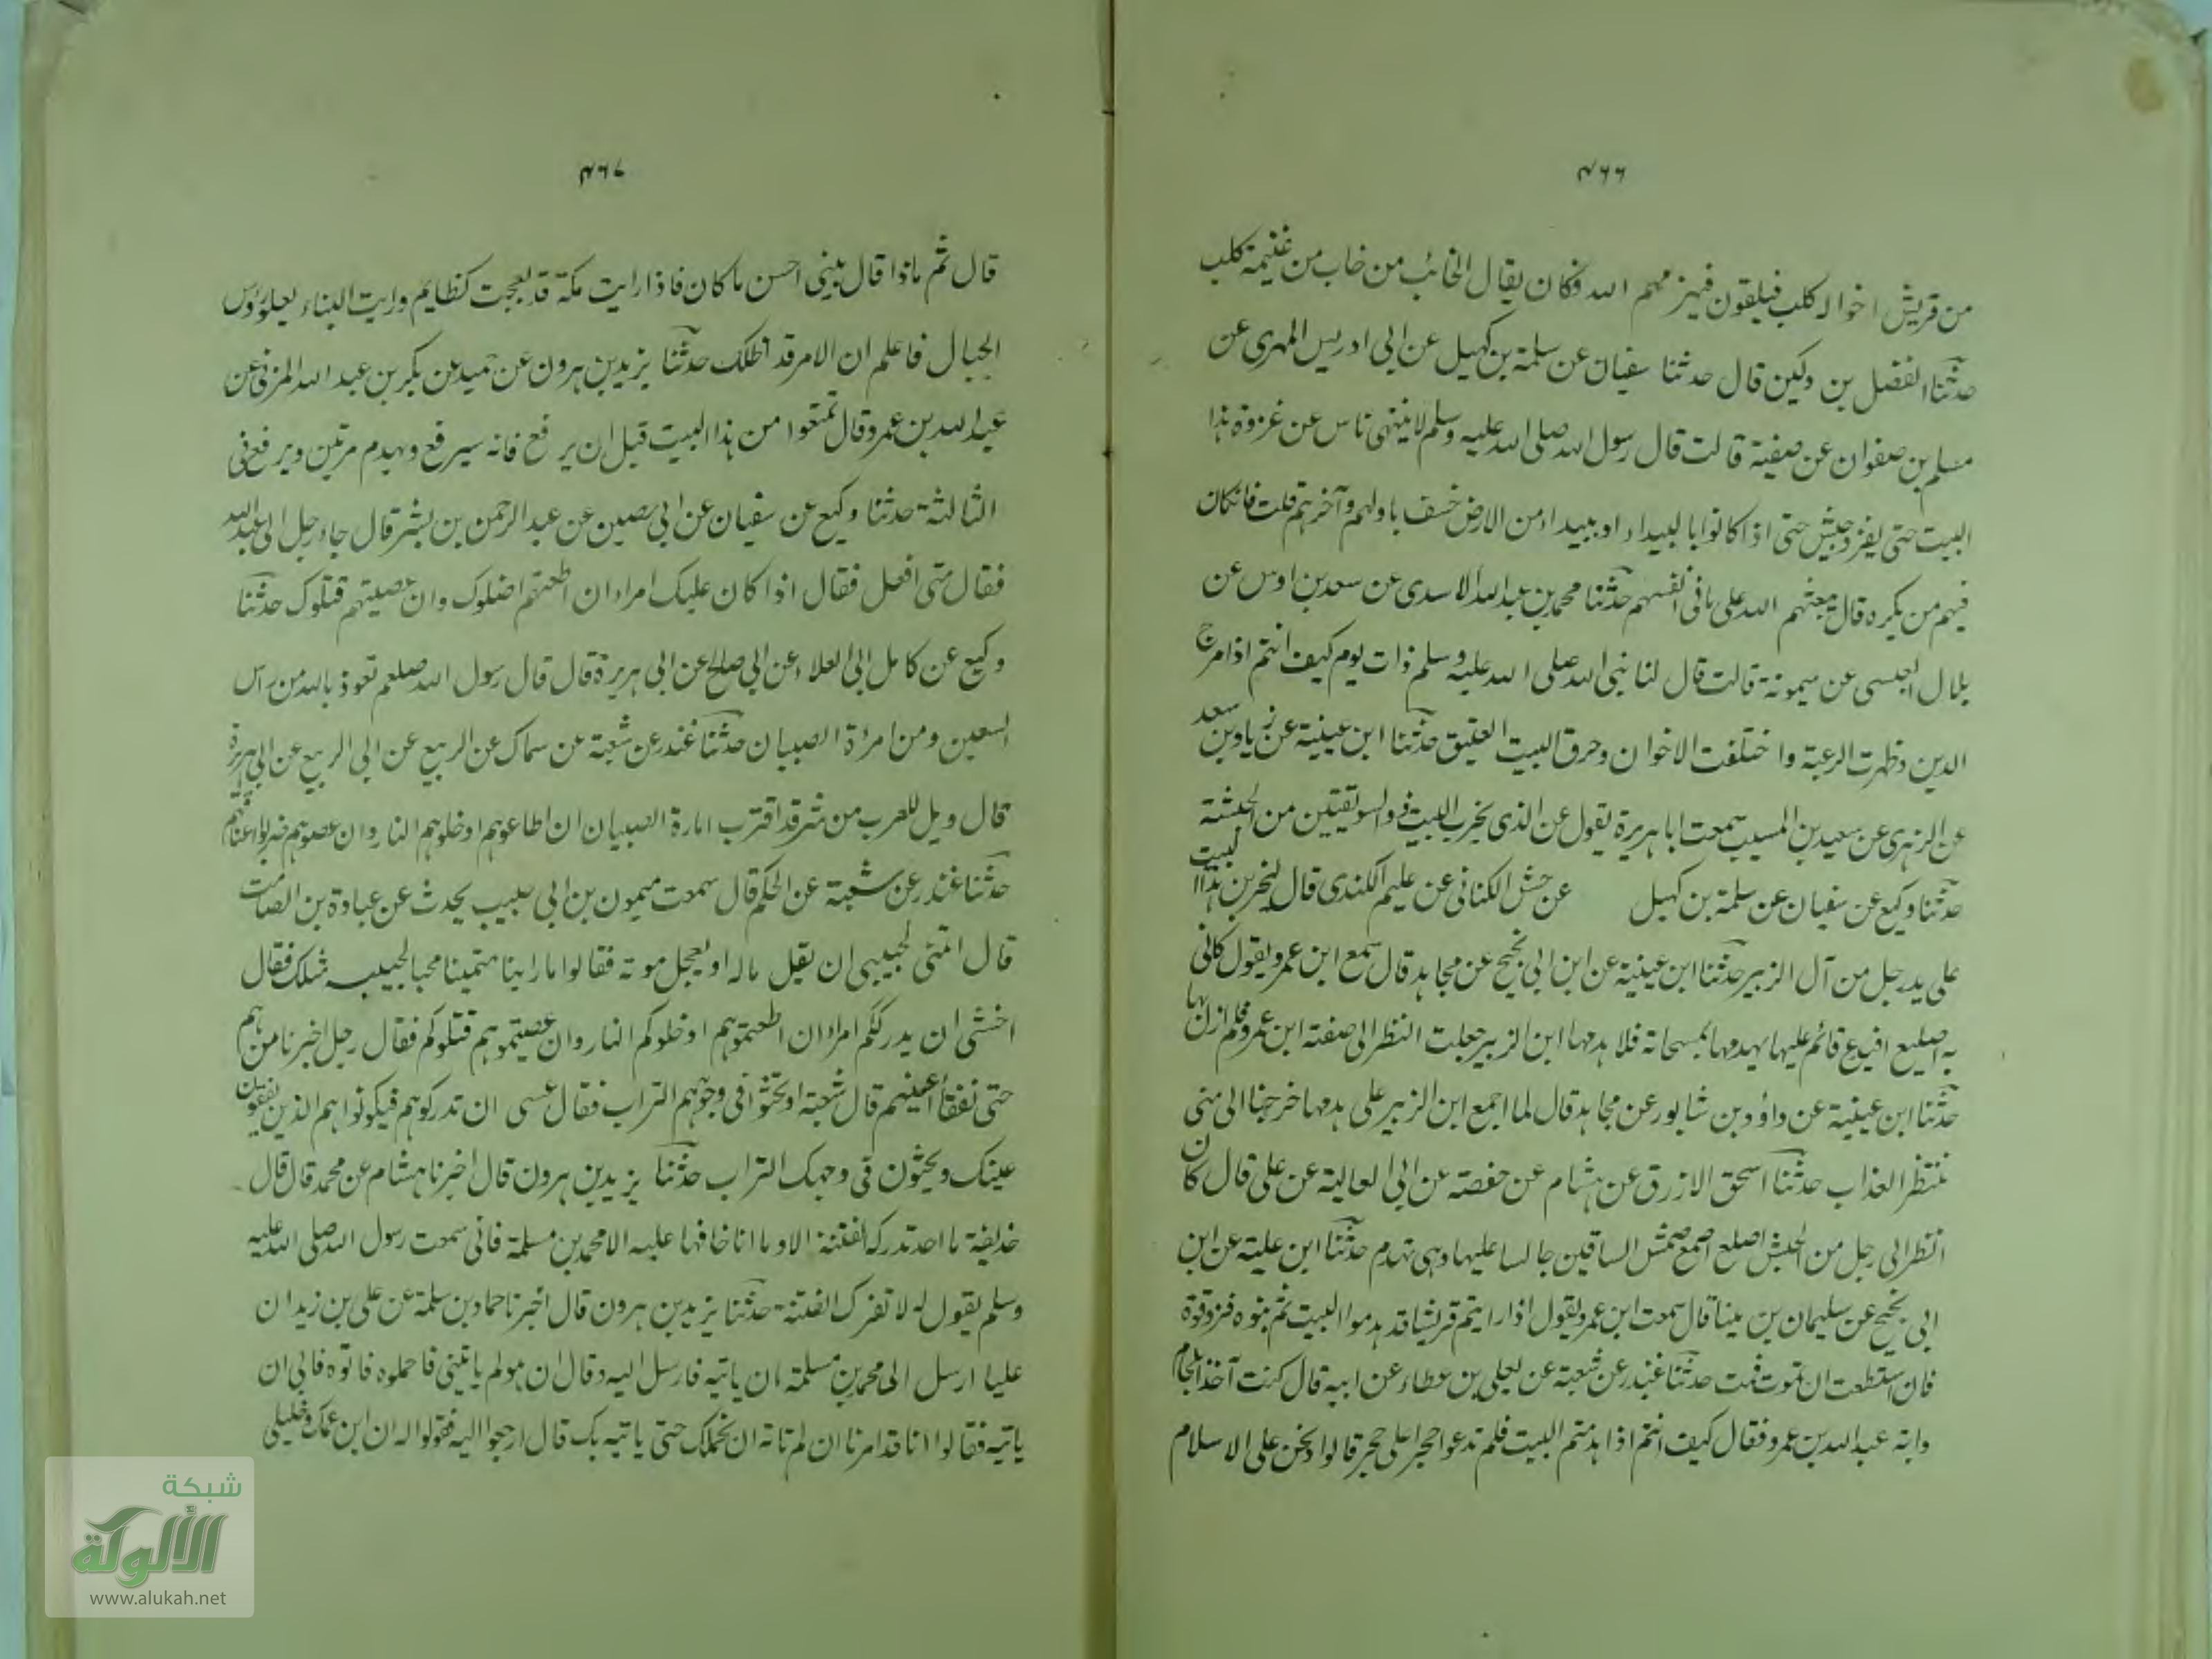 ٤٦٦
من قريش اخواله كلب فيلقون فيهزمهم الله فكان يقال الخائب من خاب من غنيمة كلب
حدثنا الفضل بن دكين قال حدثنا سفيان عن سلمة بن كهيل عن ابي ادريس المرهبي عن
مسلم بن صفوان عن صفية قالت قال رسول الله صلى الله عليه وسلم لا ينتهى ناس عن غزوة هذا
البيت حتى يغزو جيش حتى اذا كانوا بالبيداء او ببيداء من الارض خسف باولهم وآخرهم قلت فان كان
فيهم من يكره قال يبعثهم الله على ما في انفسهم حدثنا محمد بن عبد الله الاسدى عن سعد بن اوس عن
بلال العبسى عن ميمونة قالت قال لنا نبي الله صلى الله عليه وسلم ذات يوم كيف انتم اذا مرج
الدين وظهرت الرغبة واختلفت الاخوان وحرق البيت العتيق حدثنا ابن عيينة عن زياد بن سعد
عن الزهرى عن سعيد بن المسيب سمعت ابا هريرة يقول عن الذى يخرب البيت ذو السويقتين من الحبشة
حدثنا وكيع عن سفيان عن سلمة بن كهيل عن حنش الكناني عن عليم الكندى قال ليخربن هذا البيت
على يد رجل من آل الزبير حدثنا ابن عيينة عن ابن ابي نجيح عن مجاهد قال سمع ابن عمرو يقول كاني
به اصيلع افيدع قائم عليها يهدمها بمسحاته فلما هدمها ابن الزبير جعلت انظر الى صفة ابن عمرو فلم ازل بها
حدثنا ابن عيينة عن داؤد بن شابور عن مجاهد قال لما اجمع ابن الزبير على هدمها خرجنا الى منى
ننتظر العذاب حدثنا اسحق الازرق عن هشام عن حفصة عن ابي العالية عن على قال كان
انظر الى رجل من الحبش اصلع اصمع حمش الساقين جالسا عليها وهى تهدم حدثنا ابن علية عن ابن
ابي نجيح عن سليمان بن مينا قال سمعت ابن عمرو يقول اذا رايتم قريشا قد هدموا البيت ثم بنوه فزوقوه
فان استطعت ان تموت فمت حدثنا غندر عن شعبة عن يعلى بن عطاء عن ابيه قال كنت آخذا بلجام
دابة عبد الله بن عمرو فقال كيف انتم اذا هدمتم البيت فلم تدعوا حجرا على حجر قالوا ونحن على الاسلام
٤٦٧
قال ثم ماذا قال يبنى احسن ما كان فاذا رايت مكة قد بعجت كظايم ورايت البناء يعلو رؤس
الجبال فاعلم ان الامر قد اظلك حدثنا يزيد بن هرون عن حميد عن بكر بن عبد الله المزني عن
عبد الله بن عمرو قال تمتعوا من هذا البيت قبل ان يرفع فانه سيرفع ويهدم مرتين ويرفع في
الثالثة حدثنا وكيع عن سفيان عن ابي حصين عن عبد الرحمن بن بشر قال جاء رجل الى عبد الله
فقال متى افعل فقال اذا كان عليك امراء ان اطعتهم اضلوك وان عصيتهم قتلوك حدثنا
وكيع عن كامل ابي العلاء عن ابي صالح عن ابي هريرة قال قال رسول الله صلعم تعوذ بالله من راس
السبعين ومن امرة الصبيان حدثنا غندر عن شعبة عن سماك عن ابي الربيع عن ابي هريرة
قال ويل للعرب من شر قد اقترب امارة الصبيان ان اطاعوهم ادخلوهم النار وان عصوهم ضربوا اعناقهم
حدثنا غندر عن شعبة عن الحكم قال سمعت ميمون بن ابي حبيب يحدث عن عبادة بن الصامت
قال اتمنى لحبيبي ان يقل ماله او يعجل موته فقالوا ما راينا متمنيا محبا لحبيبه مثلك فقال
اخشى ان يدرككم امراء ان اطعتموهم ادخلوكم النار وان عصيتموهم قتلوكم فقال رجل اخبرنا من هم
حتى نفقأ اعينهم قال شعبة او نحثو في وجوههم التراب فقال عسى ان تدركوهم فيكونوا هم الذين يفقؤن
عينك ويحثون في وجهك التراب حدثنا يزيد بن هرون قال اخبرنا هشام عن محمد قال قال
حذيفة ما احد تدركه الفتنة الا وما انا خافها عليه الا محمد بن مسلمة فاني سمعت رسول الله صلى الله عليه
وسلم يقول له لا تضرك الفتنة حدثنا يزيد بن هرون قال اخبرنا حماد بن سلمة عن على بن زيد ان
عليا ارسل الى محمد بن مسلمة ان ياتيه فارسل اليه وقال ان هو لم ياتيني فاحملوه فاتوه فابى ان
ياتيه فقالوا انا قد امرنا ان لم تاته ان نحملك حتى ياتيه بك قال ارجعوا اليه فقولوا له ان ابن عمك وخليلي
شبكة
الألوكة
www.alukah.net